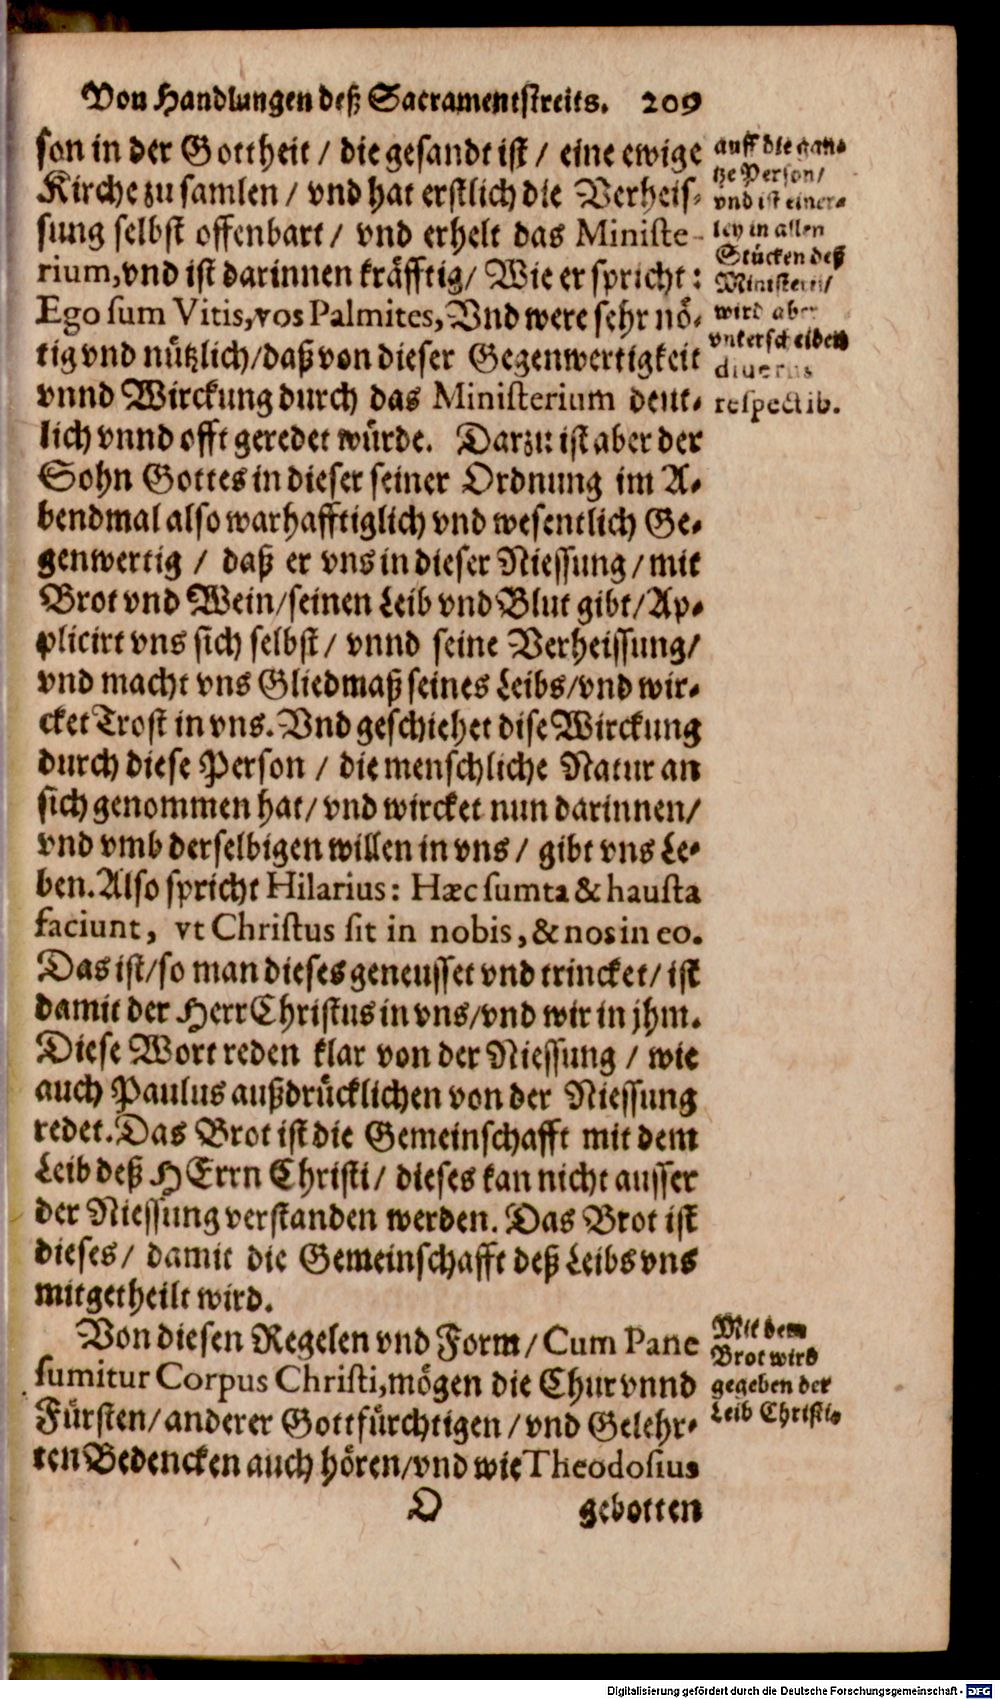 Von Handlungen deß Sacramentstreits. 209
son in der Gottheit / die gesandt ist / eine ewige
Kirche zu samlen / vnd hat erstlich die Verheis-
sung selbst offenbart / vnd erhelt das Ministe-
rium, vnd ist darinnen kräfftig / Wie er spricht:
Ego sum Vitis, vos Palmites, Vnd were sehr nö-
tig vnd nützlich / daß von dieser Gegenwertigkeit
vnnd Wirckung durch das Ministerium deut-
lich vnnd offt geredet würde. Darzu ist aber der
Sohn Gottes in dieser seiner Ordnung im A-
bendmal also warhafftiglich vnd wesentlich Ge-
genwertig / daß er vns in dieser Niessung / mit
Brot vnd Wein / seinen Leib vnd Blut gibt / Ap-
plicirt vns sich selbst / vnnd seine Verheissung /
vnd macht vns Gliedmaß seines Leibs / vnd wir-
cket Trost in vns. Vnd geschiehet dise Wirckung
durch diese Person / die menschliche Natur an
sich genommen hat / vnd wircket nun darinnen /
vnd vmb derselbigen willen in vns / gibt vns Le-
ben. Also spricht Hilarius: Hæc sumta & hausta
faciunt, vt Christus sit in nobis, & nos in eo.
Das ist / so man dieses geneusset vnd trincket / ist
damit der Herr Christus in vns / vnd wir in jhm.
Diese Wort reden klar von der Niessung / wie
auch Paulus außdrücklichen von der Niessung
redet. Das Brot ist die Gemeinschafft mit dem
Leib deß HErrn Christi / dieses kan nicht ausser
der Niessung verstanden werden. Das Brot ist
dieses / damit die Gemeinschafft deß Leibs vns
mitgetheilt wird.
Von diesen Regelen vnd Form / Cum Pane
sumitur Corpus Christi, mögen die Chur vnnd
Fürsten / anderer Gottfürchtigen / vnd Gelehr-
ten Bedencken auch hören / vnd wie Theodosius
O gebotten
auff die gan-
tze Person /
vnd ist einer-
ley in allen
Stücken deß
Ministerij /
wird aber
vnterscheiden
diuersis
respectib.
Mit dem
Brot wird
gegeben der
Leib Christi.
Digitalisierung gefördert durch die Deutsche Forschungsgemeinschaft - DFG